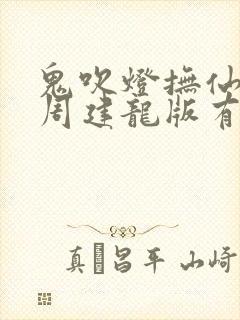 鬼吹燈撫仙
周建龍版有
真 昌平 山崎